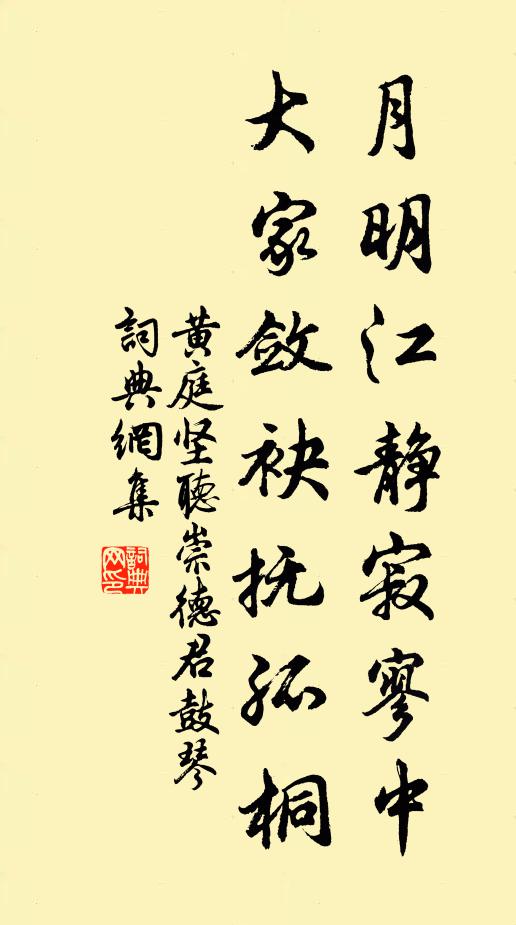 月明江静寂寥中
大家敛袂抚孤桐
黄庭坚聽崇德君鼓琴
詞典網集
詞典网印